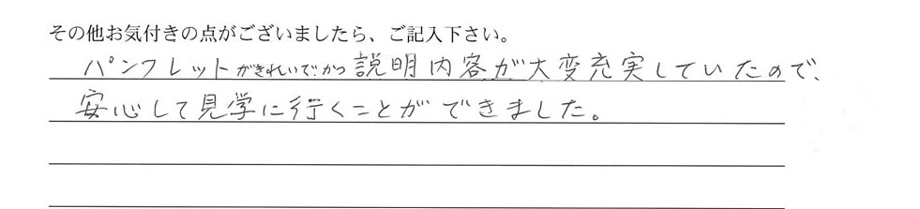 その他お気付きの点がございましたら、ご記入下さい。
パンフレットがきれいでかつ説明内容が大変充実していたので、
安心して見学に行くことができました。